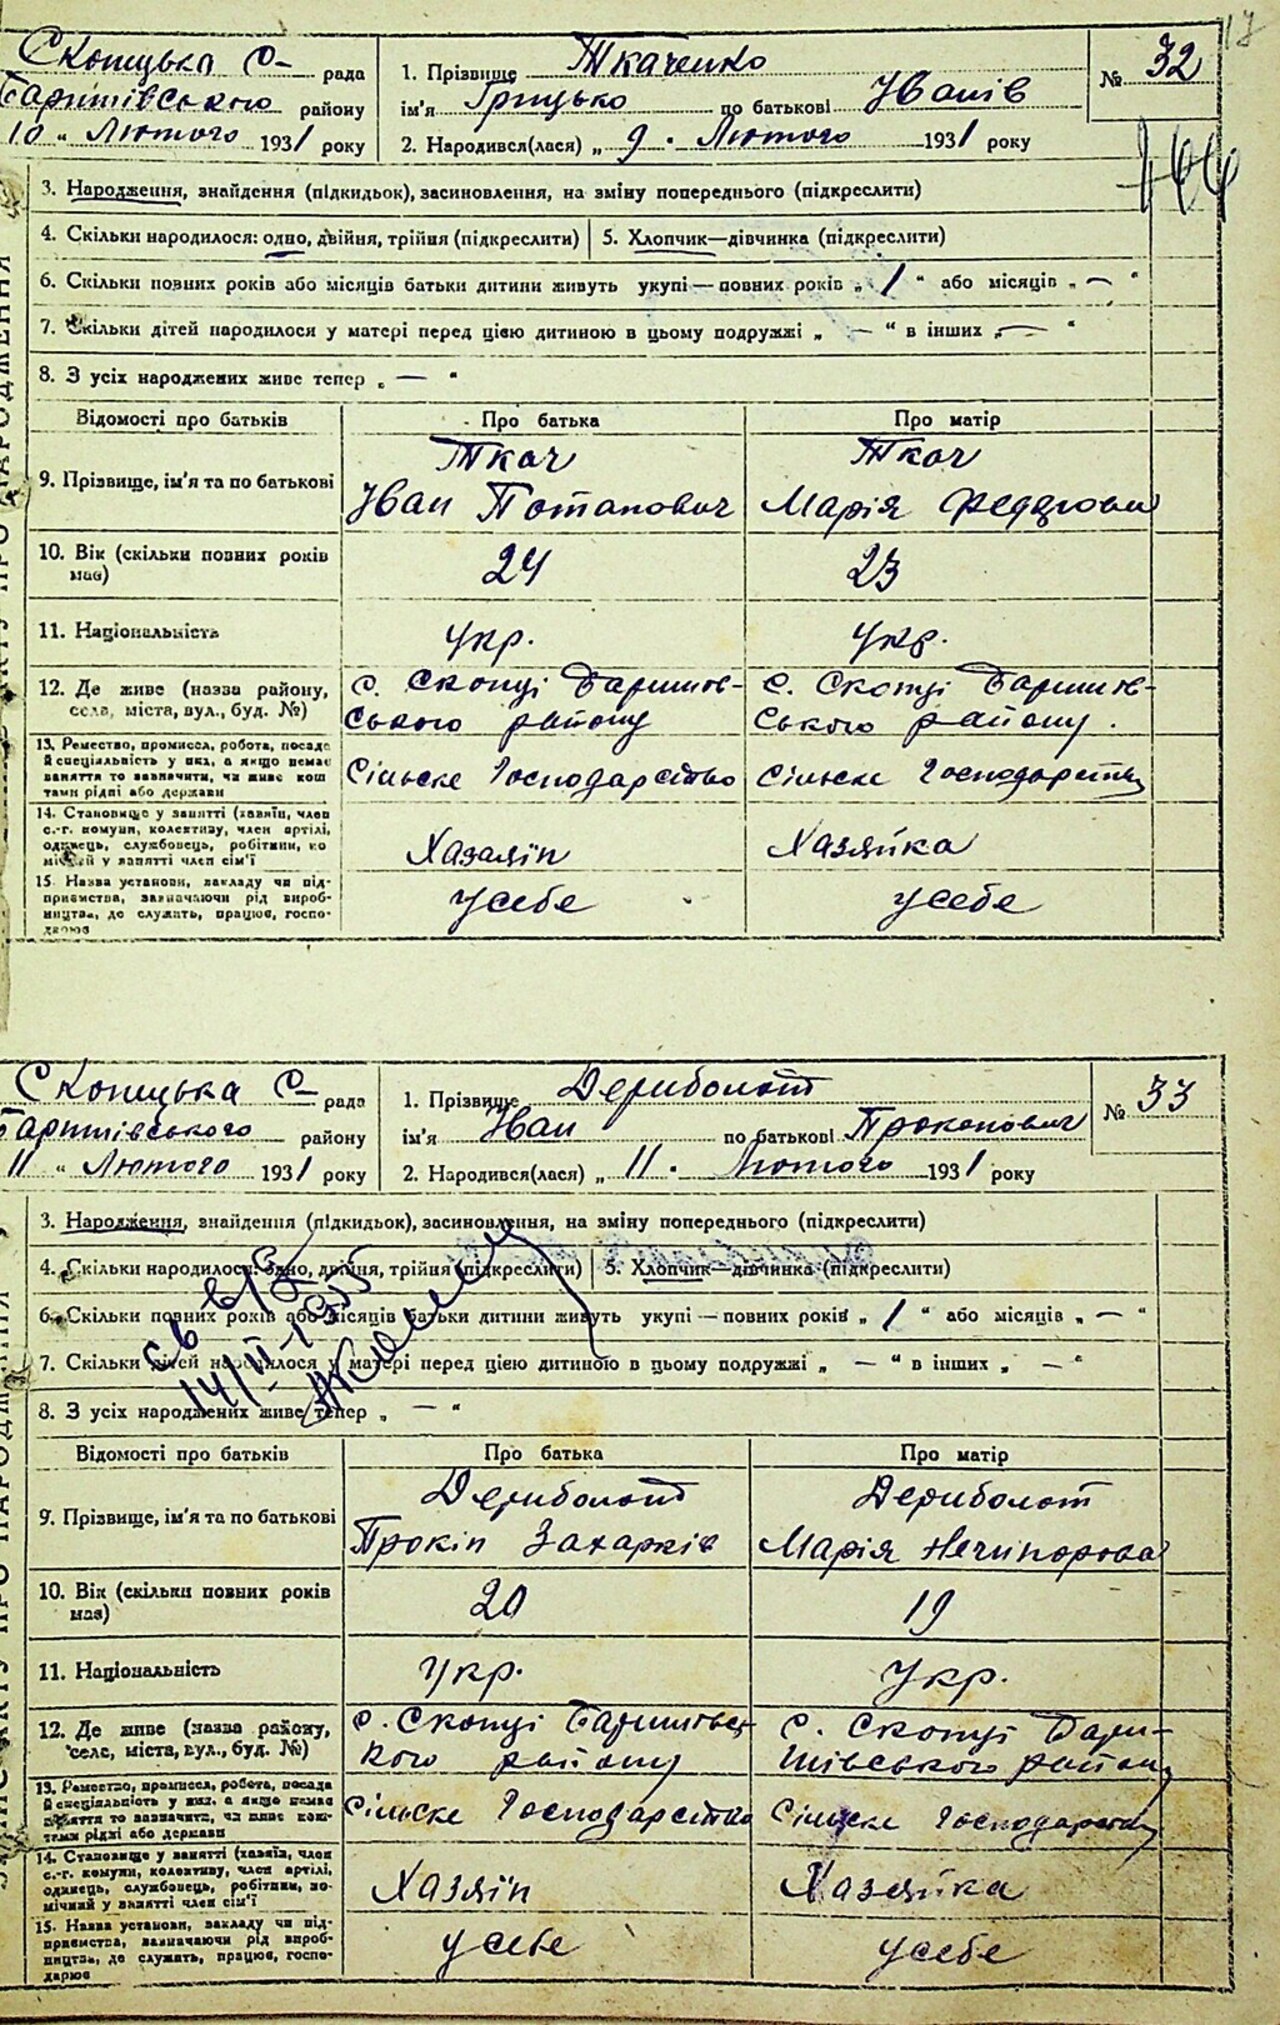 17
Скопцька С- рада
Баришівського району
10 „ Лютого 1931 року
1. Прізвище Ткаченко
ім'я Грицько по батькові Іванів
2. Народився(лася) „ 9 . Лютого 1931 року
№ 32
3. Народження, знайдення (підкидьок), засиновлення, на зміну попереднього (підкреслити)
4. Скільки народилося: одно, двійня, трійня (підкреслити) 5. Хлопчик—дівчинка (підкреслити)
6. Скільки повних років або місяців батьки дитини живуть укупі — повних років „ 1 “ або місяців „ — “
7. Скільки дітей народилося у матері перед цією дитиною в цьому подружжі „ — “ в інших „ — “
8. З усіх народжених живе тепер „ — “
Відомості про батьків Про батька Про матір
9. Прізвище, ім'я та по батькові
Ткач
Іван Потапович
Ткач
Марія
10. Вік (скільки повних років має)
24 23
11. Національність укр. укр.
12. Де живе (назва району, села, міста, вул., буд. №)
с. Скопці Баришів-
ського району
с. Скопці Баришів-
ського району.
13. Ремество, промисел, робота, посада
й спеціяльність у них, а якщо немає
заняття то зазначити, чи живе кош
тами рідні або держави
Сільске Господарство Сільске Господарство
14. Становище у занятті (хазяїн, член
с.-г. комуни, колективу, член артілі,
одинець, службовець, робітник, по
мічний у занятті член сім'ї
Хазаяїн Хазяйка
15. Назва установи, закладу чи під-
приємства, зазначаючи рід вироб-
ництва, де служить, працює, госпо-
дарює
усебе усебе
Скопцька С- рада
Баришівського району
11 „ Лютого 1931 року
1. Прізвище Дериболот
ім'я Іван по батькові Прокопович
2. Народився(лася) „ 11 . Лютого 1931 року
№ 33
3. Народження, знайдення (підкидьок), засиновлення, на зміну попереднього (підкреслити)
4. Скільки народилося: одно, двійня, трійня (підкреслити) 5. Хлопчик—дівчинка (підкреслити)
6. Скільки повних років або місяців батьки дитини живуть укупі — повних років „ 1 “ або місяців „ — “
7. Скільки дітей народилося у матері перед цією дитиною в цьому подружжі „ — “ в інших „ — “
8. З усіх народжених живе тепер „ — “
14/II-1955
Відомості про батьків Про батька Про матір
9. Прізвище, ім'я та по батькові
Дериболот
Прокіп Захарків
Дериболот
Марія Нечипорова
10. Вік (скільки повних років має)
20 19
11. Національність укр. укр.
12. Де живе (назва району, села, міста, вул., буд. №)
с. Скопці Баришівсь-
кого району
с. Скопці Бари-
шівського району
13. Ремество, промисел, робота, посада
й спеціяльність у них, а якщо немає
заняття то зазначити, чи живе кош-
тами рідні або держави
Сільске Господарство Сільске Господарство
14. Становище у занятті (хазяїн, член
с.-г. комуни, колективу, член артілі,
одинець, службовець, робітник, по-
мічний у занятті член сім'ї
Хазяїн Хазяйка
15. Назва установи, закладу чи під-
приємства, зазначаючи рід вироб-
ництва, де служить, працює, госпо-
дарює
усебе усебе